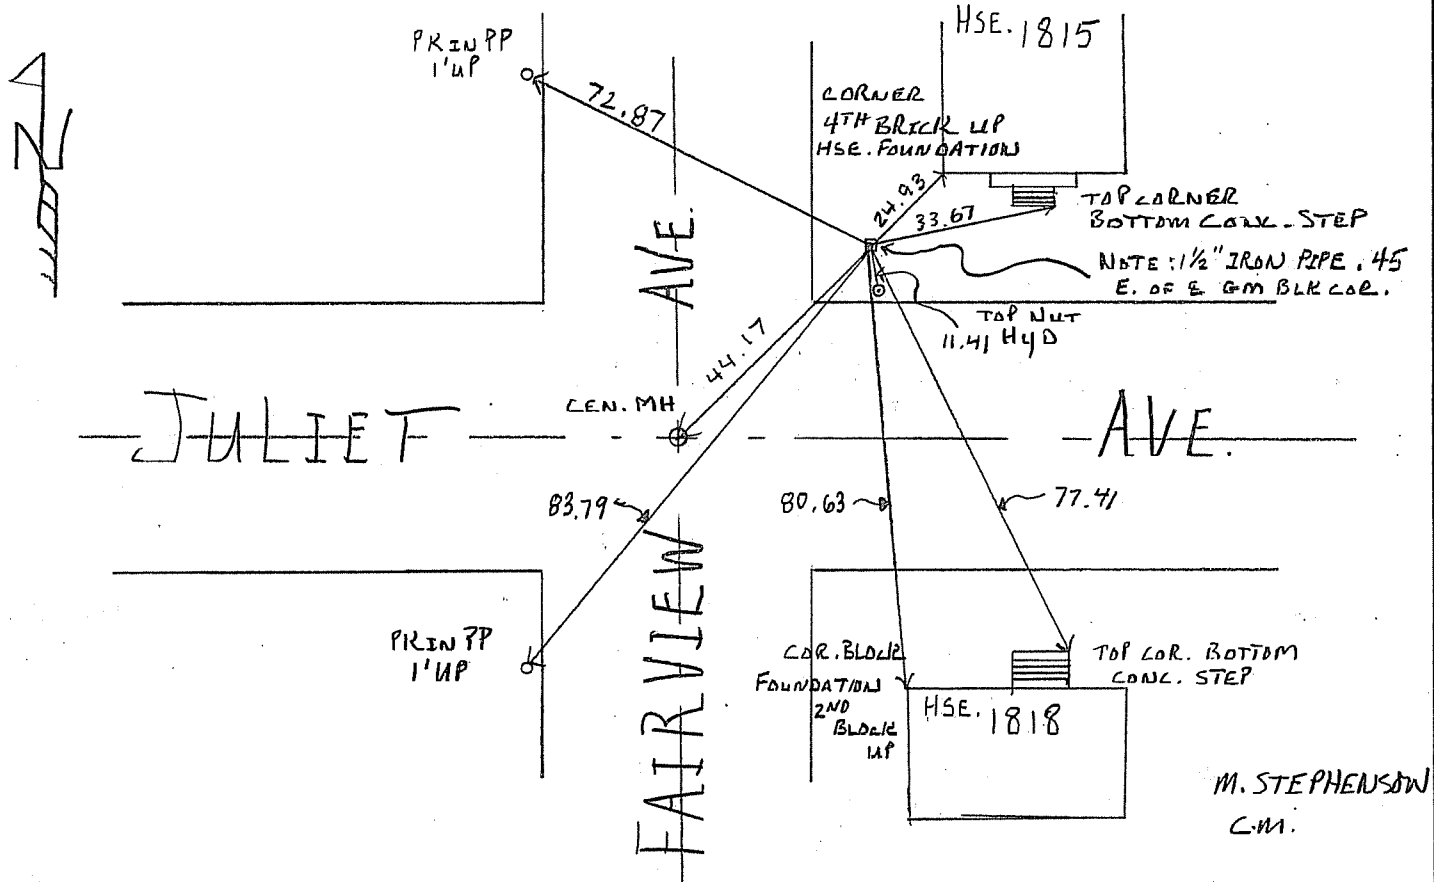 HSE. 1815
PK IN PP
1' UP
N
72.87
CORNER
4TH BRICK UP
HSE. FOUNDATION
24.93
33.67
TOP CORNER
BOTTOM CONC. STEP
NOTE: 1½" IRON PIPE .45
E. OF & GM BLK COR.
TOP NUT
11.41 HYD
AVE.
44.17
CEN. MH
JULIET
AVE.
83.79
80.63
77.41
FAIRVIEW
PK IN PP
1' UP
COR. BLOCK
FOUNDATION
2ND
BLOCK
UP
TOP COR. BOTTOM
CONC. STEP
HSE. 1818
M. STEPHENSON
C.M.